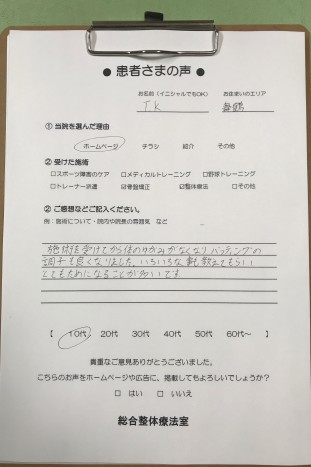 ● 患者さまの声 ●
お名前(イニシャルでもOK) お住まいのエリア
T.K 舞鶴
① 当院を選んだ理由
ホームページ チラシ 紹介 その他
② 受けた施術
□スポーツ障害のケア □メディカルトレーニング □野球トレーニング
□トレーナー派遣 ☑骨盤矯正 ☑整体療法 □その他
② ご感想などご記入ください。
例:施術について・院内や院長の雰囲気 など
施術を受けてから体のゆがみがなくなりバッティングの
調子も良くなりました。いろいろな事も教えてもらい
とてもためになることが多いです
【 10代 20代 30代 40代 50代 60代~ 】
貴重なご意見ありがとうございました。
こちらのお声をホームページや広告に、掲載してもよろしいでしょうか?
□ はい □ いいえ
総合整体療法室